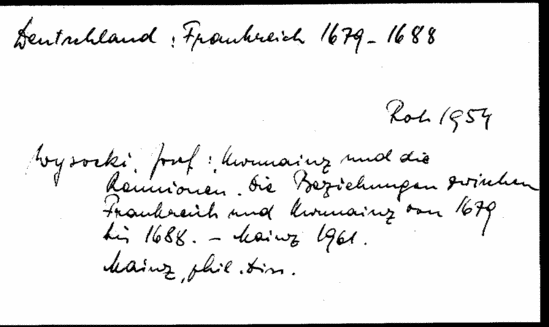 Deutschland : Frankreich 1679-1688
Roh 1954
Wysocki, Josef : Kurmainz und die
Reunionen. Die Beziehungen zwischen
Frankreich und Kurmainz von 1679
bis 1688. - Mainz 1961.
Mainz, phil. Diss.